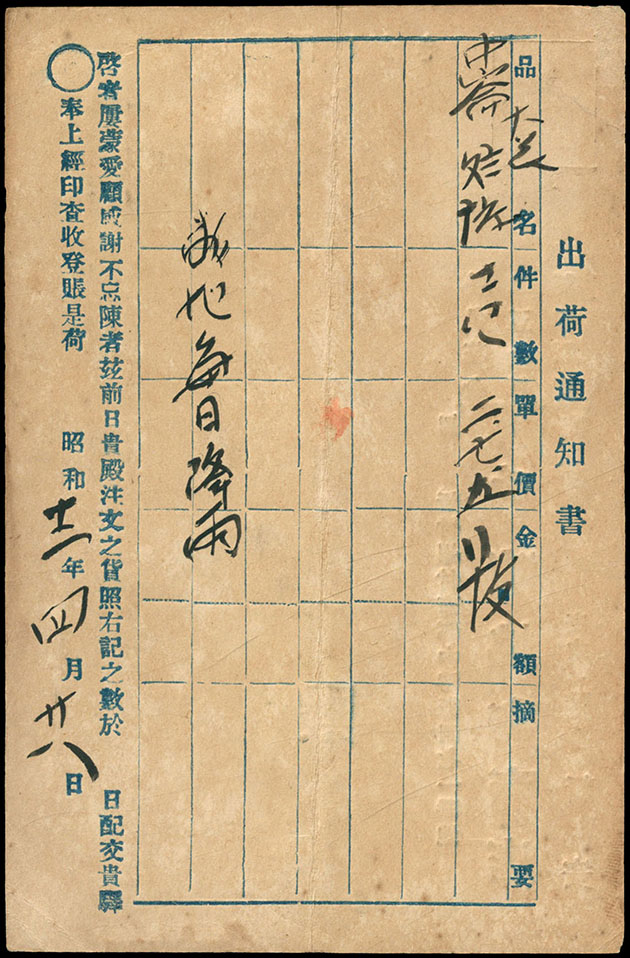 出荷通知書
品名件數單價金額摘要
二七五
敝地每日降雨
啓者屢蒙愛顧感謝不忘陳者玆前日貴殿注文之貨照右記之數於 日配交貴驛
奉上經印査收登賬是荷 昭和十二年四月廿八日